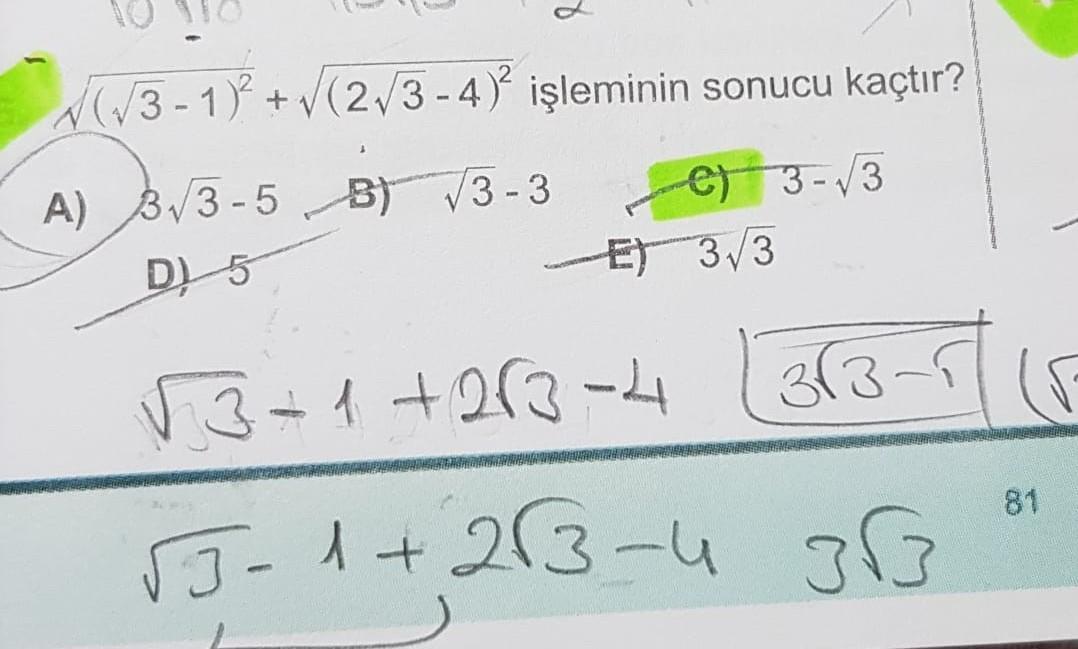 √(√3 - 1)² + √(2√3 - 4)² işleminin sonucu kaçtır?
A) 3√3 - 5 B) √3 - 3 C) 3 - √3
D) 5 E) 3√3
√3 - 1 + 2√3 - 4 3√3 - 5
81
√3 - 1 + 2√3 - 4 3√3